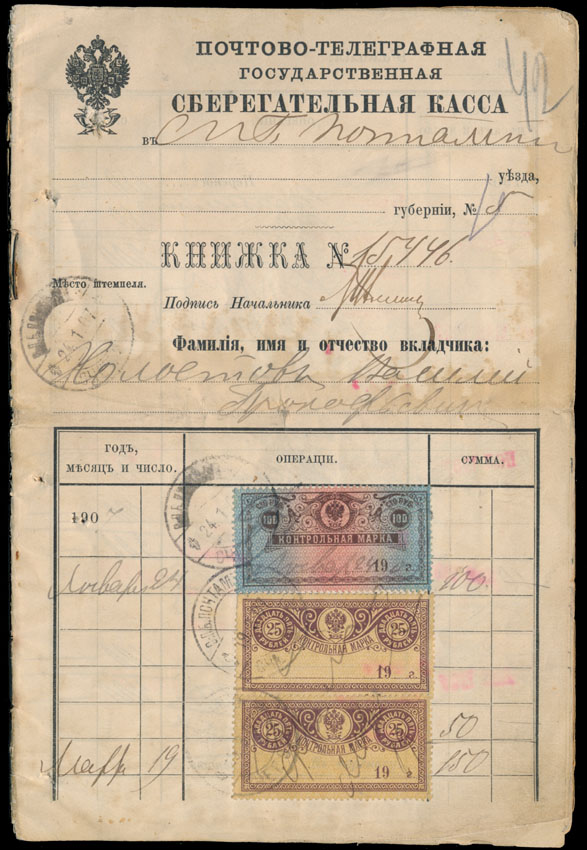 ПОЧТОВО-ТЕЛЕГРАФНАЯ
ГОСУДАРСТВЕННАЯ
СБЕРЕГАТЕЛЬНАЯ КАССА
42
въ СПБ Почтамтъ
уѣзда,
губерніи, №
КНИЖКА № 15446.
Мѣсто штемпеля.
Подпись Начальника
Фамилія, имя и отчество вкладчика:
Холостовъ Василій
Прокофьевичъ
ГОДЪ, МѢСЯЦЪ И ЧИСЛО.
ОПЕРАЦІИ.
СУММА.
190
100 100
КОНТРОЛЬНАЯ МАРКА
Января 24 19 г.
Января 24
100
25 25
КОНТРОЛЬНАЯ МАРКА
19 г.
25 25
КОНТРОЛЬНАЯ МАРКА
19 г.
50
Март 19
150